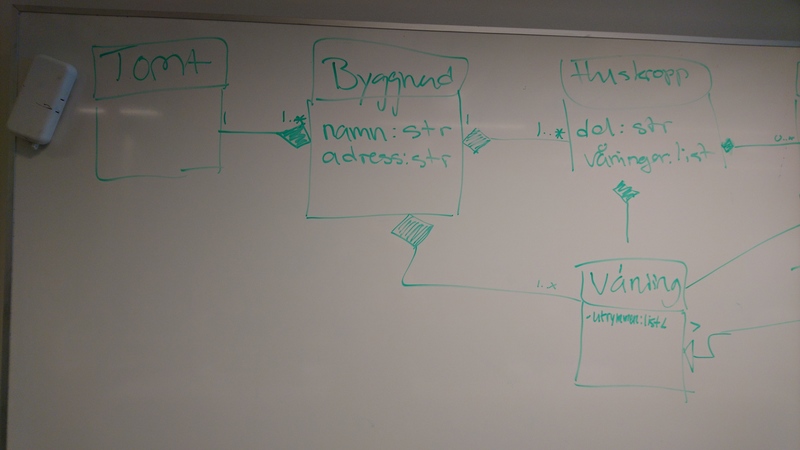 Tomt
Byggnad
namn: str
adress: str
Huskropp
del: str
våningar: list
1
1..*
1
1..*
0..*
1..*
Våning
-utrymmen: list<
>